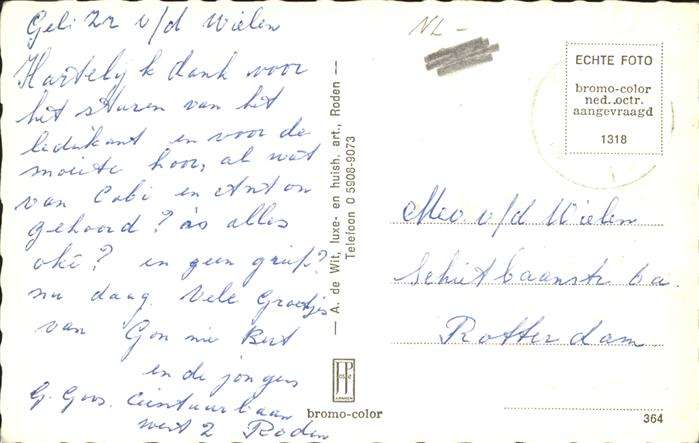 Geli Zr v/d Wielen
Hartelijk dank voor
het sturen van het
ledikant en voor de
moeite hoor, al wat
van Cobi en Anton
gehoord? is alles
oké? en geen griep?
nu daag Vele Groetjes
van Gon nie Bert
en de jongens
G. Goos. Ceintuurbaan
west 2 Roden
NL-
ECHTE FOTO
bromo-color
ned. octr.
aangevraagd
1318
— A. de Wit, luxe- en huish. art., Roden —
Telefoon 0 5908-9073
Mev v/d Wielen
Schietbaanstr 6a
Rotterdam
JP
bromo-color
364